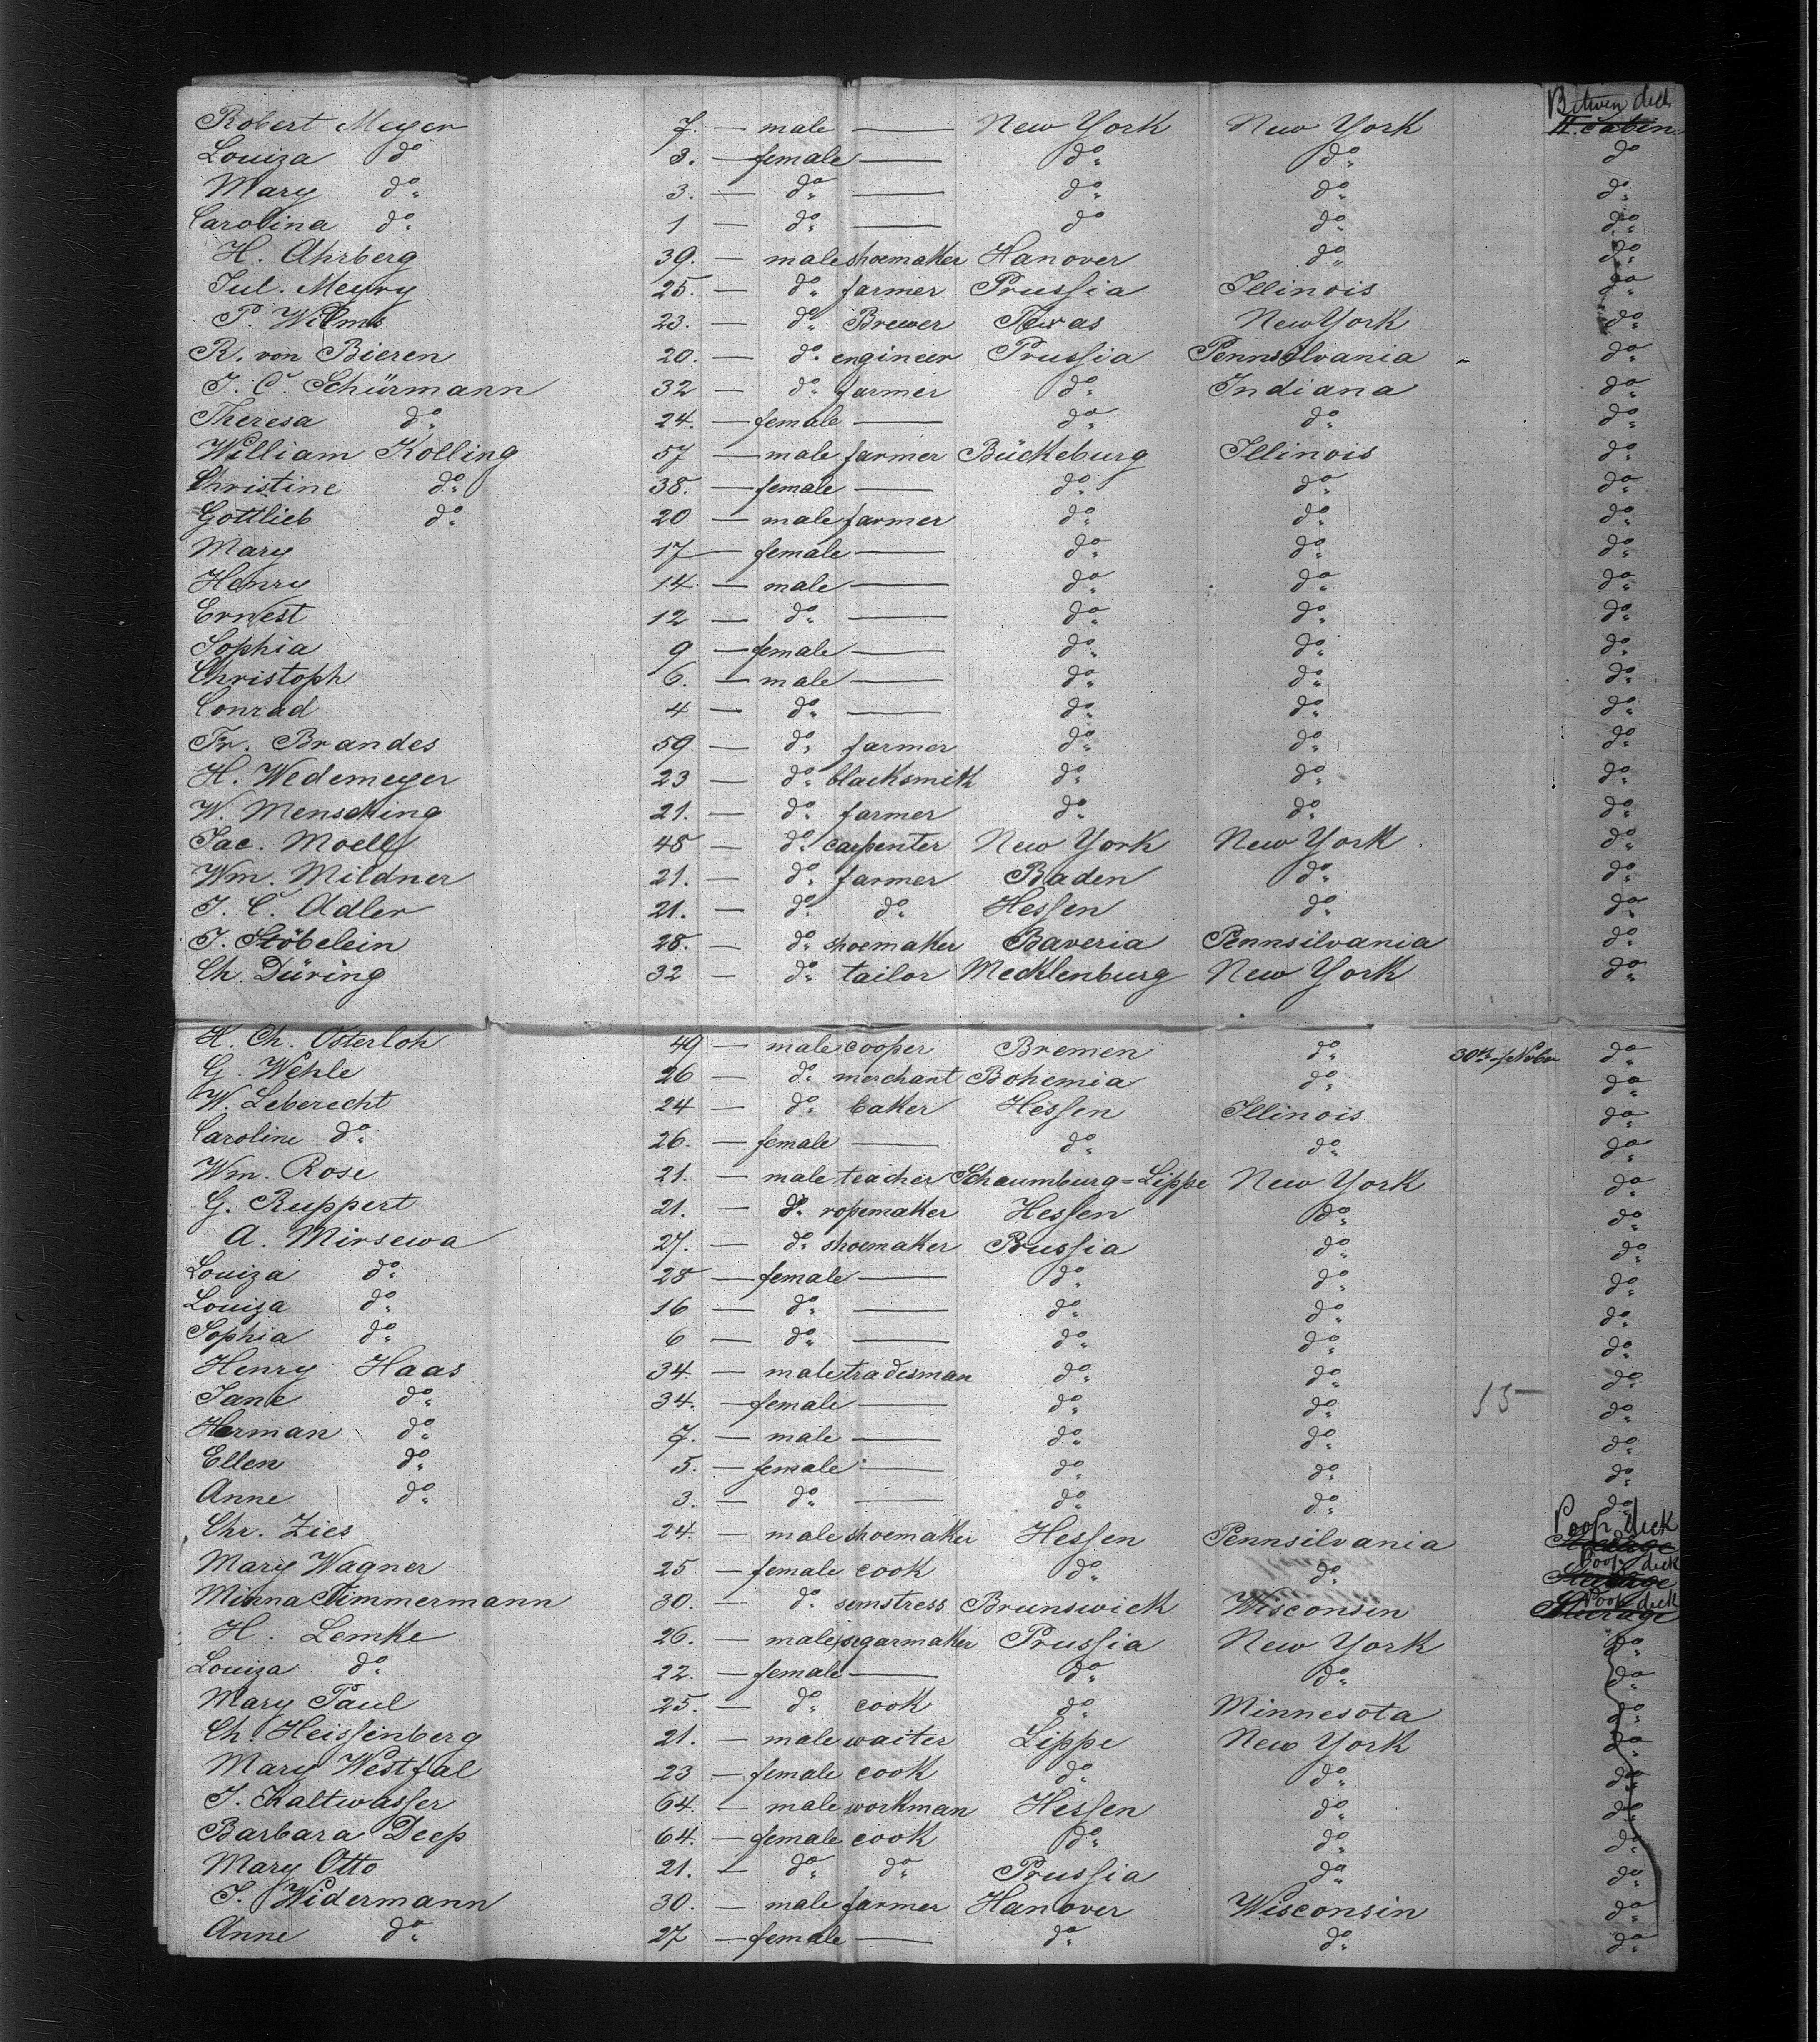 Between deck
Robert Meyer 7. — male — New York New York II. Cabin
Louiza do 3. — female — do do do
Mary do 3. — do — do do do
Carolina do 1 — do — do do do
H. Ahrberg 39. — male shoemaker Hanover do do
Jul. Meyry 25. — do farmer Prussia Illinois do
P. Wilms 23. — do Brewer Texas New York do
R. von Bieren 20. — do engineer Prussia Pennsilvania do
J. C. Schürmann 32 — do farmer do Indiana do
Theresa do 24. — female — do do do
William Kolling 57 — male farmer Bückeburg Illinois do
Christine do 38. — female — do do do
Gottlieb do 20 — male farmer do do do
Mary 17 — female — do do do
Henry 14 — male — do do do
Ernest 12 — do — do do do
Sophia 9 — female — do do do
Christoph 6. — male — do do do
Conrad 4 — do — do do do
Fr. Brandes 59 — do farmer do do do
H. Wedemeyer 23 — do blacksmith do do do
W. Mensching 21. — do farmer do do do
Jac. Moell 48 — do carpenter New York New York do
Wm. Mildner 21. — do farmer Baden do do
J. C. Adler 21. — do do Hessen do do
J. Stöbelein 28. — do shoemaker Baveria Pennsilvania do
Ch. Düring 32 — do tailor Mecklenburg New York do
H. Ch. Osterloh 49 — male cooper Bremen do 30th of Nobr do
G. Wehle 26 — do merchant Bohemia do do
W. Leberecht 24 — do baker Hessen Illinois do
Caroline do 26. — female — do do do
Wm. Rose 21. — male teacher Schaumburg=Lippe New York do
G. Ruppert 21. — do ropemaker Hessen do do
A. Mirsewa 27. — do shoemaker Prussia do do
Louiza do 28 — female — do do do
Louiza do 16 — do — do do do
Sophia do 6 — do — do do do
Henry Haas 34 — male tradesman do do do
Jane do 34. — female — do do do
Herman do 7. — male — do do do
Ellen do 5. — female — do do do
Anne do 3. — do — do do do
Chr. Zies 24. — male shoemaker Hessen Pennsilvania Poop deck Steerage
Mary Wagner 25 — female cook do do Poop deck Steerage
Minna Timmermann 30. — do semstress Brunswick Wisconsin Poop deck Steerage
H. Lemke 26. — male segarmaker Prussia New York do
Louiza do 22. — female — do do do
Mary Paul 25. — do cook do Minnesota do
Ch. Heissenberg 21. — male waiter Lippe New York do
Mary Westfal 23 — female cook do do do
J. Kaltwasser 64. — male workman Hessen do do
Barbara Deep 64. — female cook do do do
Mary Otto 21. — do do Prussia do do
J. Widermann 30. — male farmer Hanover Wisconsin do
Anne do 27 — female — do do do